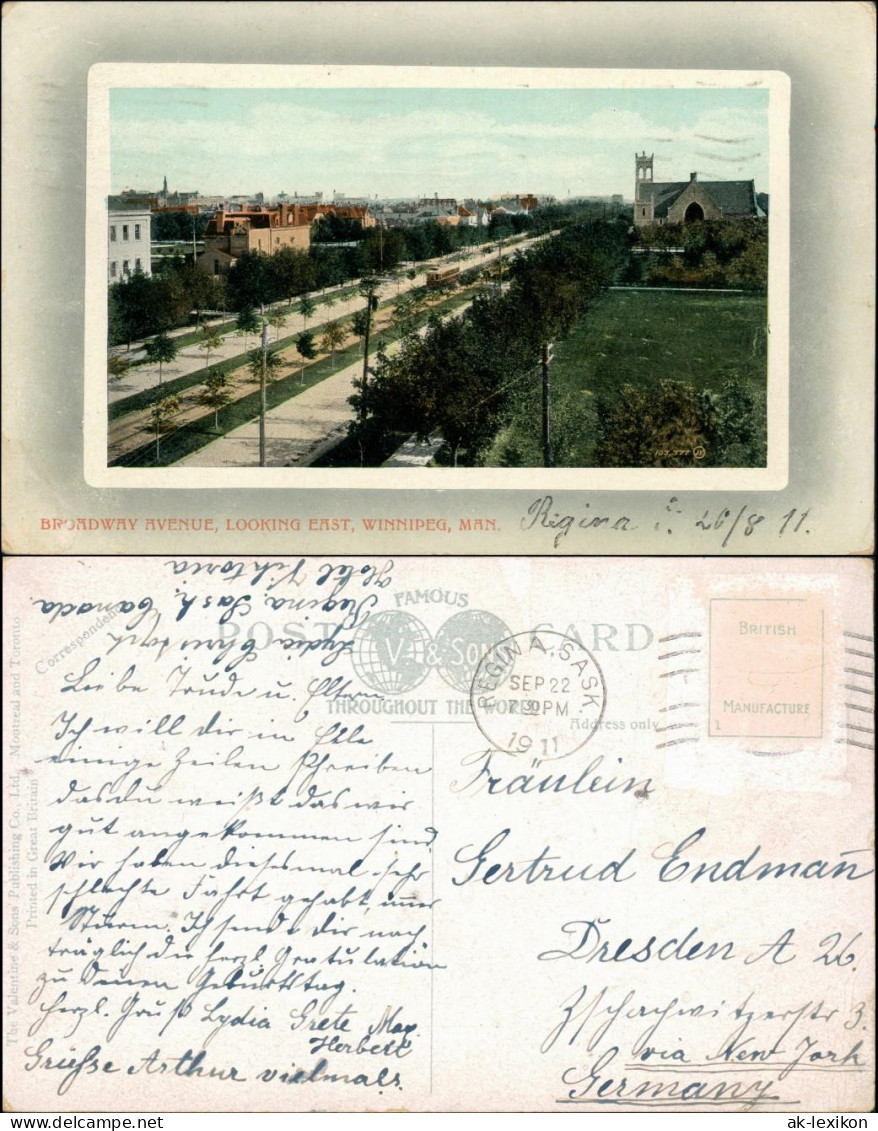 107,377 JV
BROADWAY AVENUE, LOOKING EAST, WINNIPEG, MAN.
Regina 26/8 11.
Hotel Viktoria
Regina. Sask. Canada.
Lydia
Correspondence
FAMOUS
POST CARD
V. & SONS
THROUGHOUT THE WORLD
Address only
REGINA, SASK
SEP 22
7 30 PM
1911
BRITISH
MANUFACTURE
1
The Valentine & Sons Publishing Co., Ltd., Montreal and Toronto
Printed in Great Britain
Liebe Trude u. Eltern
Ich will dir in Eile
einige Zeilen schreiben
das du weißt das wir
gut angekommen sind
Wir haben diesesmal sehr
schlechte Fahrt gehabt, immer
Sturm. Ich sende Dir nach
träglich die herzl. Gratulation
zu deinen Geburtstag.
herzl. Gruß Lydia Grete Max.
Herbert
Grüsse Arthur vielmals.
Fräulein
Gertrud Endmañ
Dresden A 26.
Zschachwitzerstr 3.
via New York
Germany
ak-lexikon
ak-lexikon